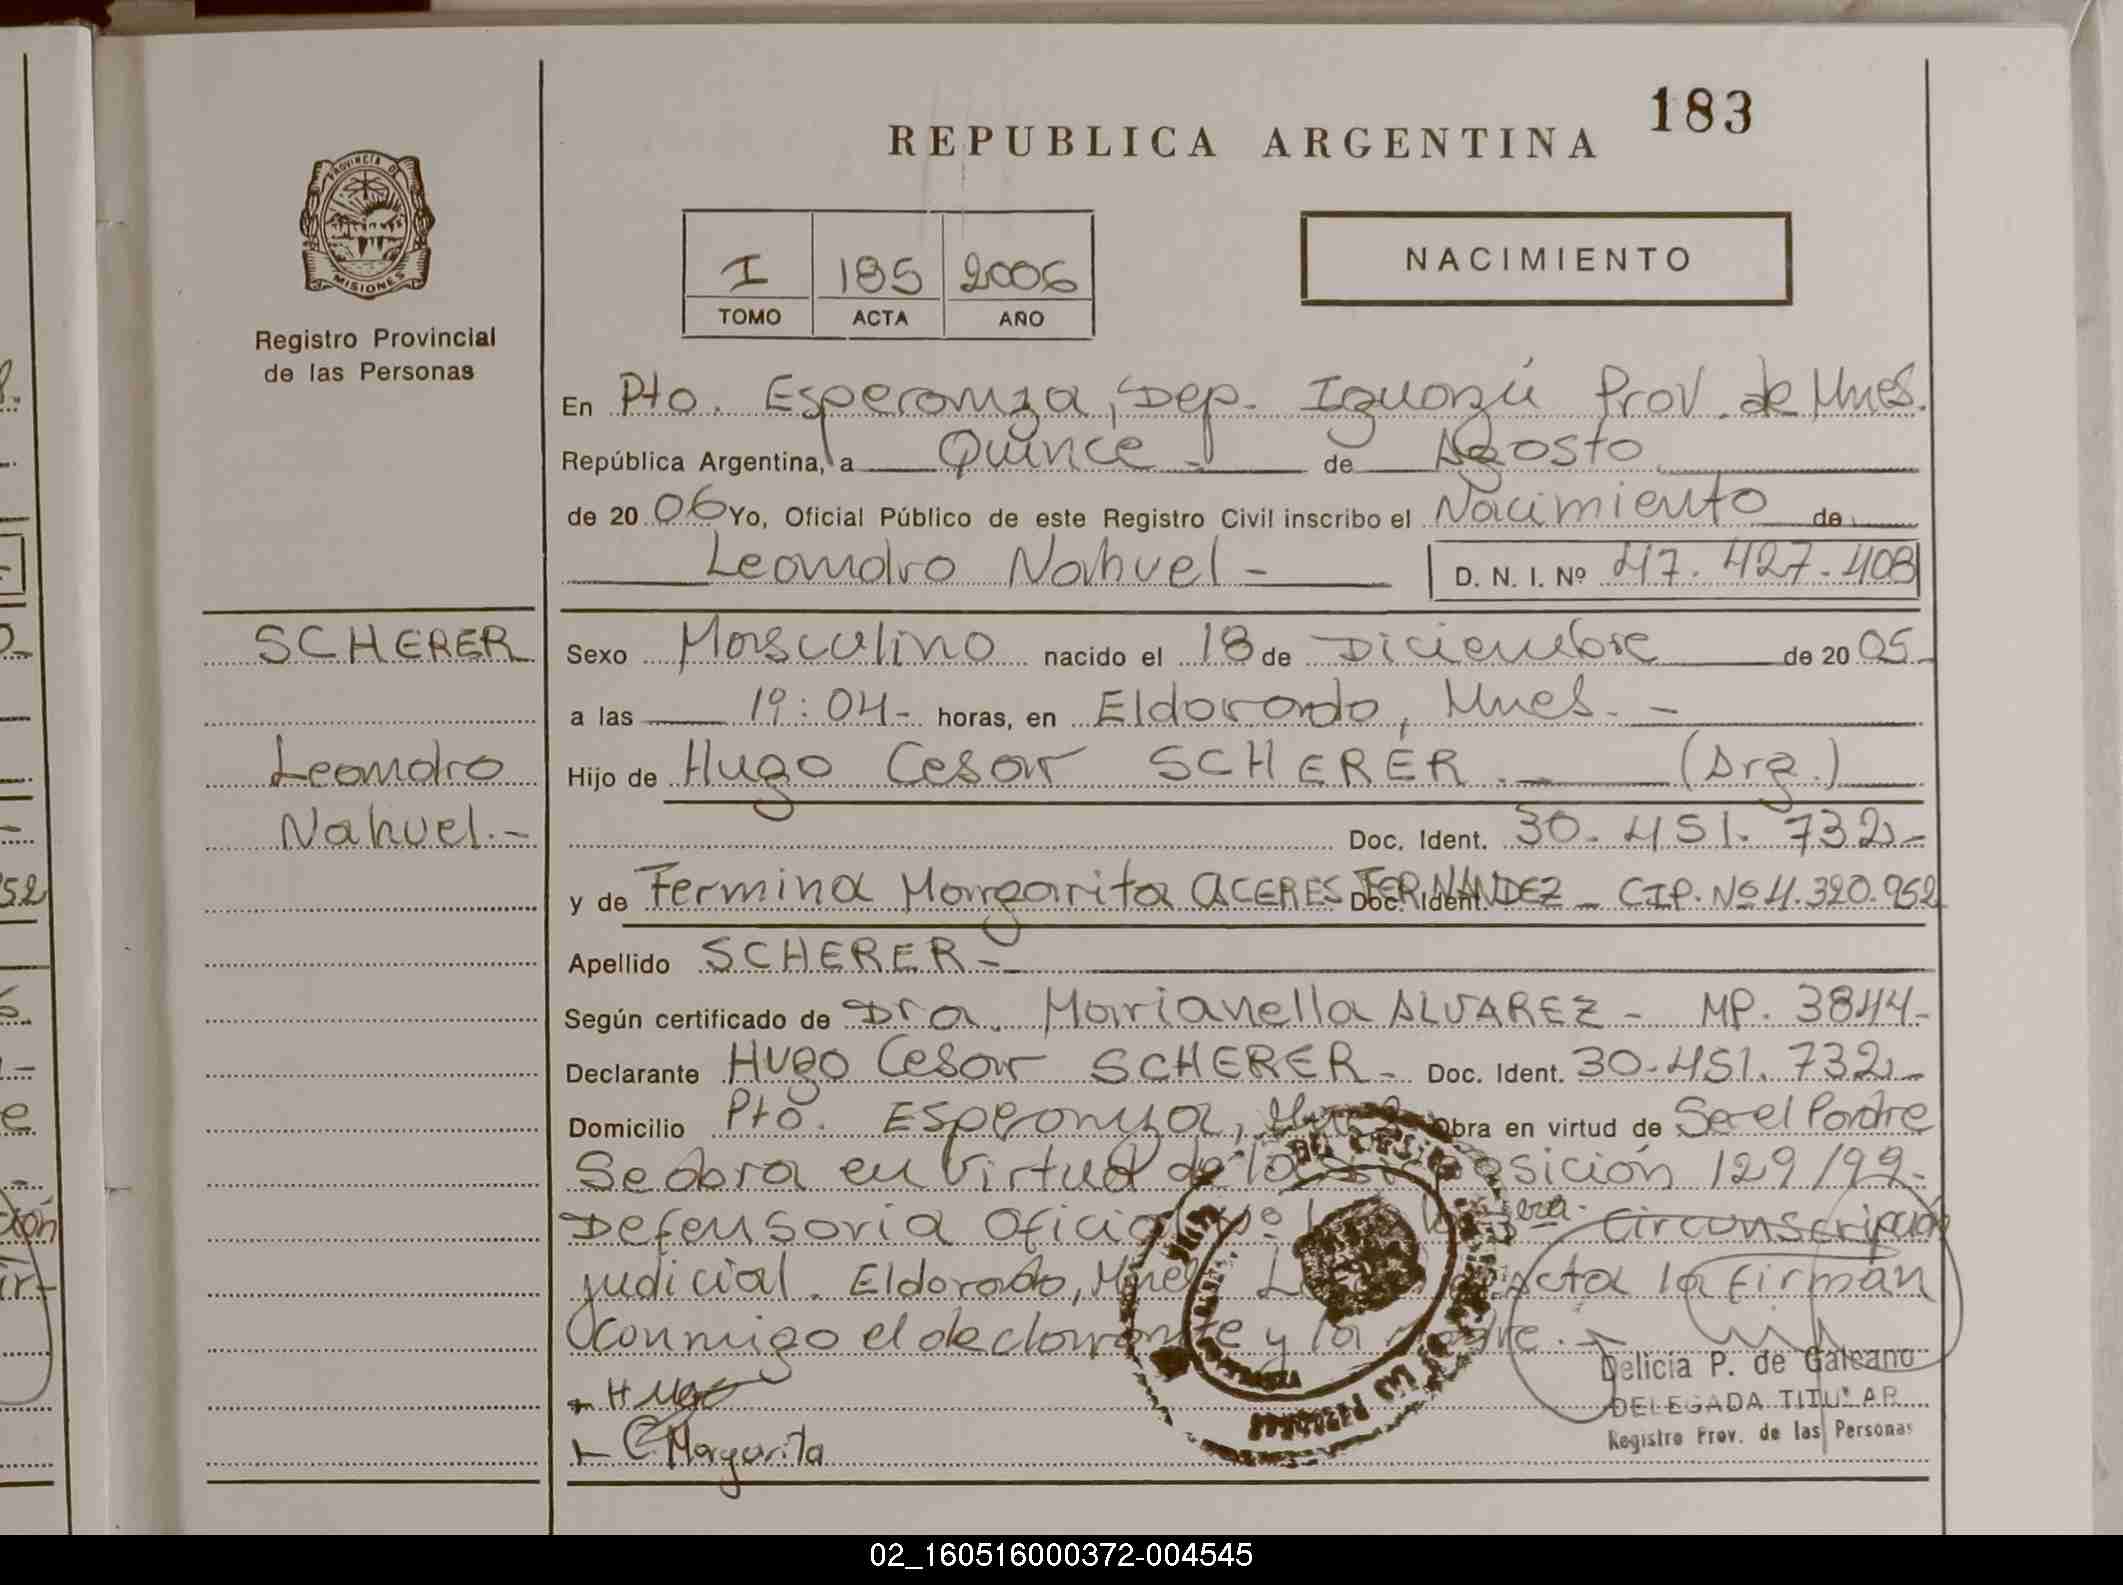 183
REPUBLICA ARGENTINA
PROVINCIA DE
MISIONES
Registro Provincial
de las Personas
I 185 2006
TOMO ACTA AÑO
NACIMIENTO
En Pto. Esperanza, Dep. Iguazú Prov. de Mnes.
República Argentina, a Quince - de Agosto
de 20 06 Yo, Oficial Público de este Registro Civil inscribo el Nacimiento de
Leandro Nahuel - D. N. I. Nº 47.427.408
SCHERER
Leandro
Nahuel.-
Sexo Masculino nacido el 18 de Diciembre de 20 05.
a las 19:04- horas, en Eldorado, Mnes. -
Hijo de Hugo Cesar SCHERER. - (Arg.)
Doc. Ident. 30.451.732-
y de Fermina Margarita CACERES FERNANDEZ - Doc. Ident. CIP. Nº 4.320.952
Apellido SCHERER-
Según certificado de Dra. Marianella ALVAREZ - MP. 3844-
Declarante Hugo Cesar SCHERER- Doc. Ident. 30.451.732-
Domicilio Pto. Esperanza, Obra en virtud de Ser el Padre
Se obra en virtud de la Disposición 129/99-
Defensoria Oficial Nº 1 3era. Circunscripción
judicial. Eldorado, Mnes. Acta la firman
conmigo el declarante y la madre.-
Hugo
C Margarita
Delicia P. de Galeano
DELEGADA TITULAR
Registro Prov. de las Personas
52
ción
02_160516000372-004545